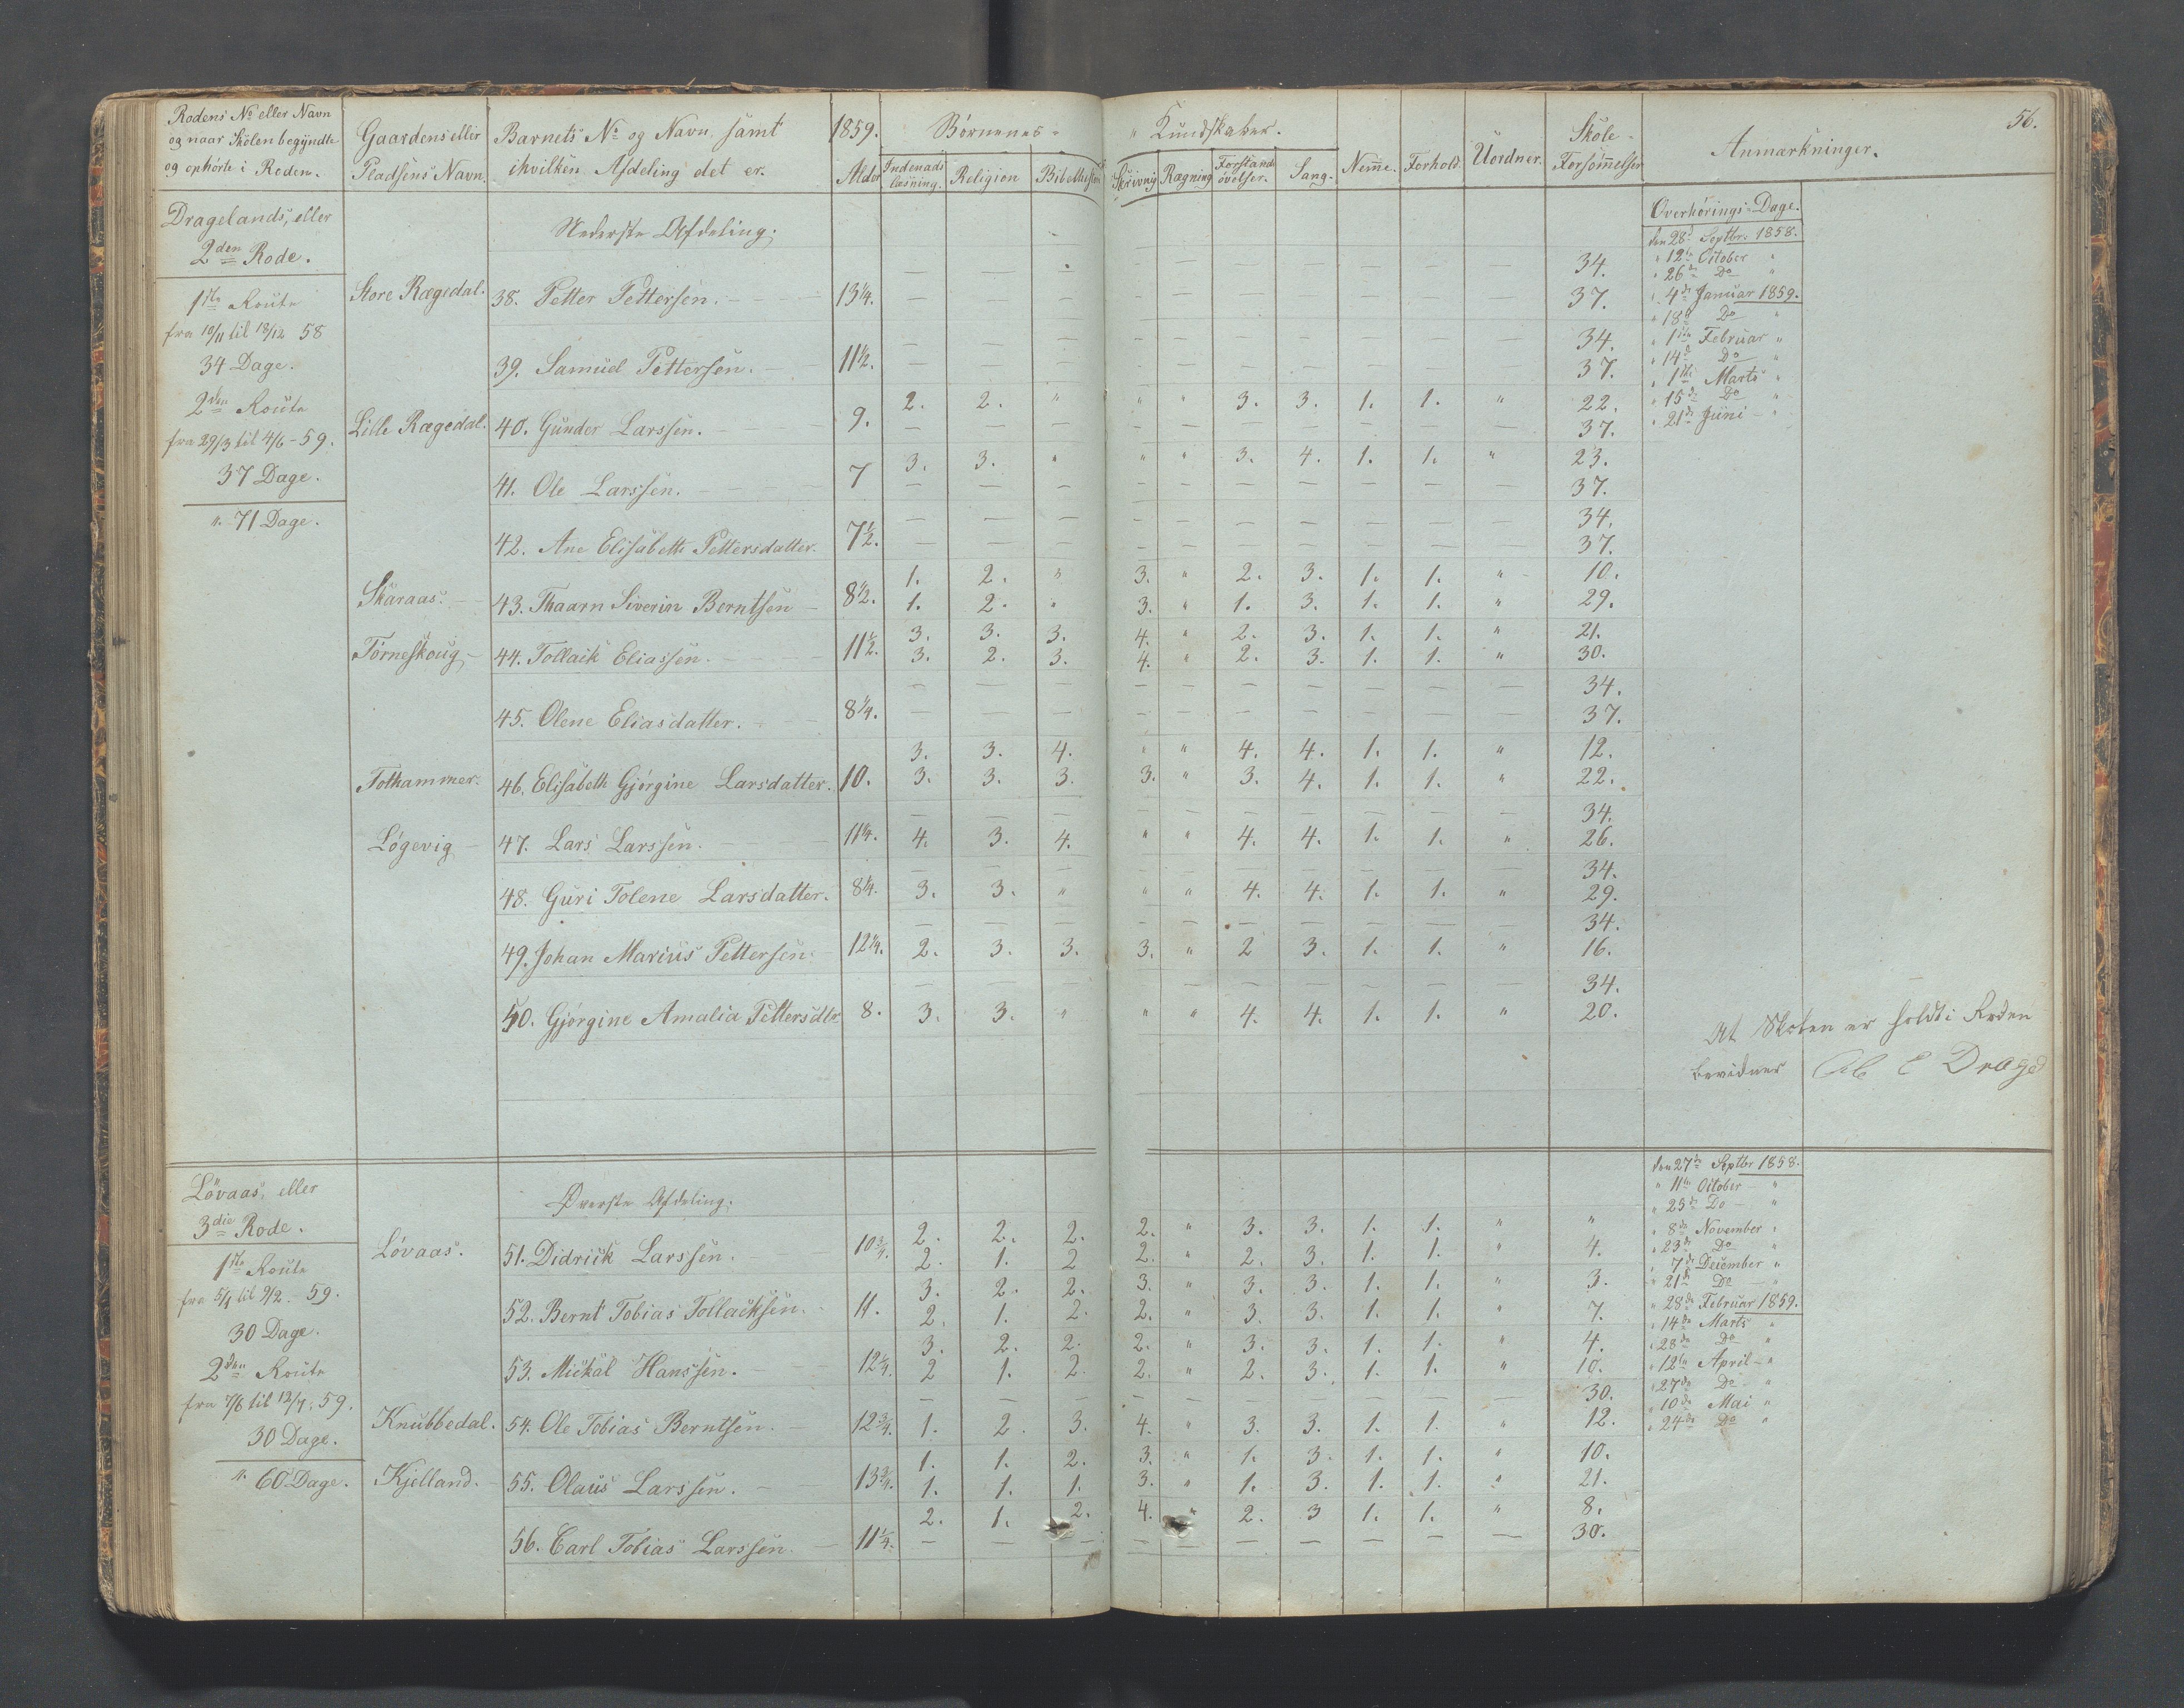 56.
Rodens No eller Navn og naar Skolen begyndte og ophörte i Roden. | Gaardens eller Pladsens Navn. | Barnets No og Navn samt ihvilken Afdeling det er. | 1859. Alder | Börnenes Kundskaber. Indenads læsning. | Religion | Bibelhist | Skrivnig | Rægning | Forstands övelser. | Sang. | Nem̄e. | Forhold. | Uordner. | Skole-Forsöm̄elser | Anmærkninger.
Dragelands, eller
2den Rode.
1ste Route
fra 10/11 til 18/12 58
34 Dage.
2den Route
fra 29/3 til 4/6 - 59.
37 Dage.
". 71 Dage.
Nederste Afdeling.
Store Rægedal. 38. Petter Pettersen. 13 1/4. — — — — — — — — — — 34.
— — — — — — — — — — 37.
39. Samuel Pettersen. 11 1/2. — — — — — — — — — — 34.
— — — — — — — — — — 37.
Lille Rægedal. 40. Gunder Larssen. 9. 2. 2. " " " 3. 3. 1. 1. " 22.
— — — — — — — — — — 37.
41. Ole Larssen. 7 3. 3. " " " 3. 4. 1. 1. " 23.
— — — — — — — — — — 37.
42. Ane Elisabeth Pettersdatter. 7 1/2. — — — — — — — — — — 34.
— — — — — — — — — — 37.
Skaraas. 43. Thaarn Siverin Berntsen 8 1/2. 1. 2. " 3. " 2. 3. 1. 1. " 10.
1. 2. " 3. " 1. 3. 1. 1. " 29.
Torneskoug 44. Tollaik Eliassen. 11 1/2. 3. 3. 3. 4. " 2. 3. 1. 1. " 21.
3. 2. 3. 4. " 2. 3. 1. 1. " 30.
45. Olene Eliasdatter. 8 1/4. — — — — — — — — — — 34.
— — — — — — — — — — 37.
Tothammer. 46. Elisabeth Gjörgine Larsdatter. 10. 3. 3. 4. " " 4. 4. 1. 1. " 12.
3. 3. 3. 3. " 3. 4. 1. 1. " 22.
Lögevig 47. Lars Larssen. 11 1/4. — — — — — — — — — — 34.
4. 3. 4. " " 4. 4. 1. 1. " 26.
48. Guri Tolene Larsdatter. 8 1/4. — — — — — — — — — — 34.
3. 3. " " " 4. 4. 1. 1. " 29.
49. Johan Marius Pettersen. 12 1/4. — — — — — — — — — — 34.
2. 3. 3. 3. " 2 3. 1. 1. " 16.
50. Gjörgine Amalia Pettersdtr. 8. — — — — — — — — — — 34.
3. 3. " " " 4. 4. 1. 1. " 20.
Overhörings-Dage.
den 28de Septbr. 1858.
" 12te October "
" 26de Do "
" 4de Januar 1859.
" 18de Do "
" 1ste Februar "
" 14de Do "
" 1ste Marts "
" 15de Do "
" 21de Juni - "
At Skolen er holdt i Roden
bevidner
Lövaas, eller
3die Rode.
1ste Route
fra 5/1 til 9/2. - 59.
30 Dage.
2den Route
fra 7/6 til 12/7. 59.
30 Dage.
". 60 Dage.
Överste Afdeling.
Lövaas. 51. Didrick Larssen. 10 3/4. 2. 2. 2. 2. " 3. 3. 1. 1. " "
2. 1. 2 2. " 2. 3. 1. 1. " 4.
52. Bernt Tobias Tollacksen. 11. 3. 2. 2. 3. " 3. 3. 1. 1. " 3.
2. 1. 2. 2. " 3. 3. 1. 1. " 7.
53. Mickal Hanssen. 12 1/4. 3. 2. 2. 2. " 3. 3. 1. 1. " 4.
2 1. 2. 2. " 2. 3. 1. 1. " 10.
Knubbedal. 54. Ole Tobias Berntsen. 12 3/4. — — — — — — — — — — 30.
1. 2. 3. 4. " 3. 3. 1. 1. " 12.
Kjelland. 55. Olaus Larssen. 13 3/4. 1. 1. 2. 3. " 1. 3. 1. 1. " 10.
1. 1. 1. 3. " 1. 3. 1. 1. " 21.
56. Carl Tobias Larssen. 11 1/4. 2. 1. 2. 4. " 2. 3 1. 1. " 8.
— — — — — — — — — — 30.
den 27de Septbr 1858.
" 11te October "
" 25de Do - "
" 8de November "
" 23de Do "
" 7de December "
" 21de Do - "
" 28de Februar 1859.
" 14de Marts "
" 28de Do "
" 12te April - "
" 27de Do "
" 10de Mai "
" 24de Do "